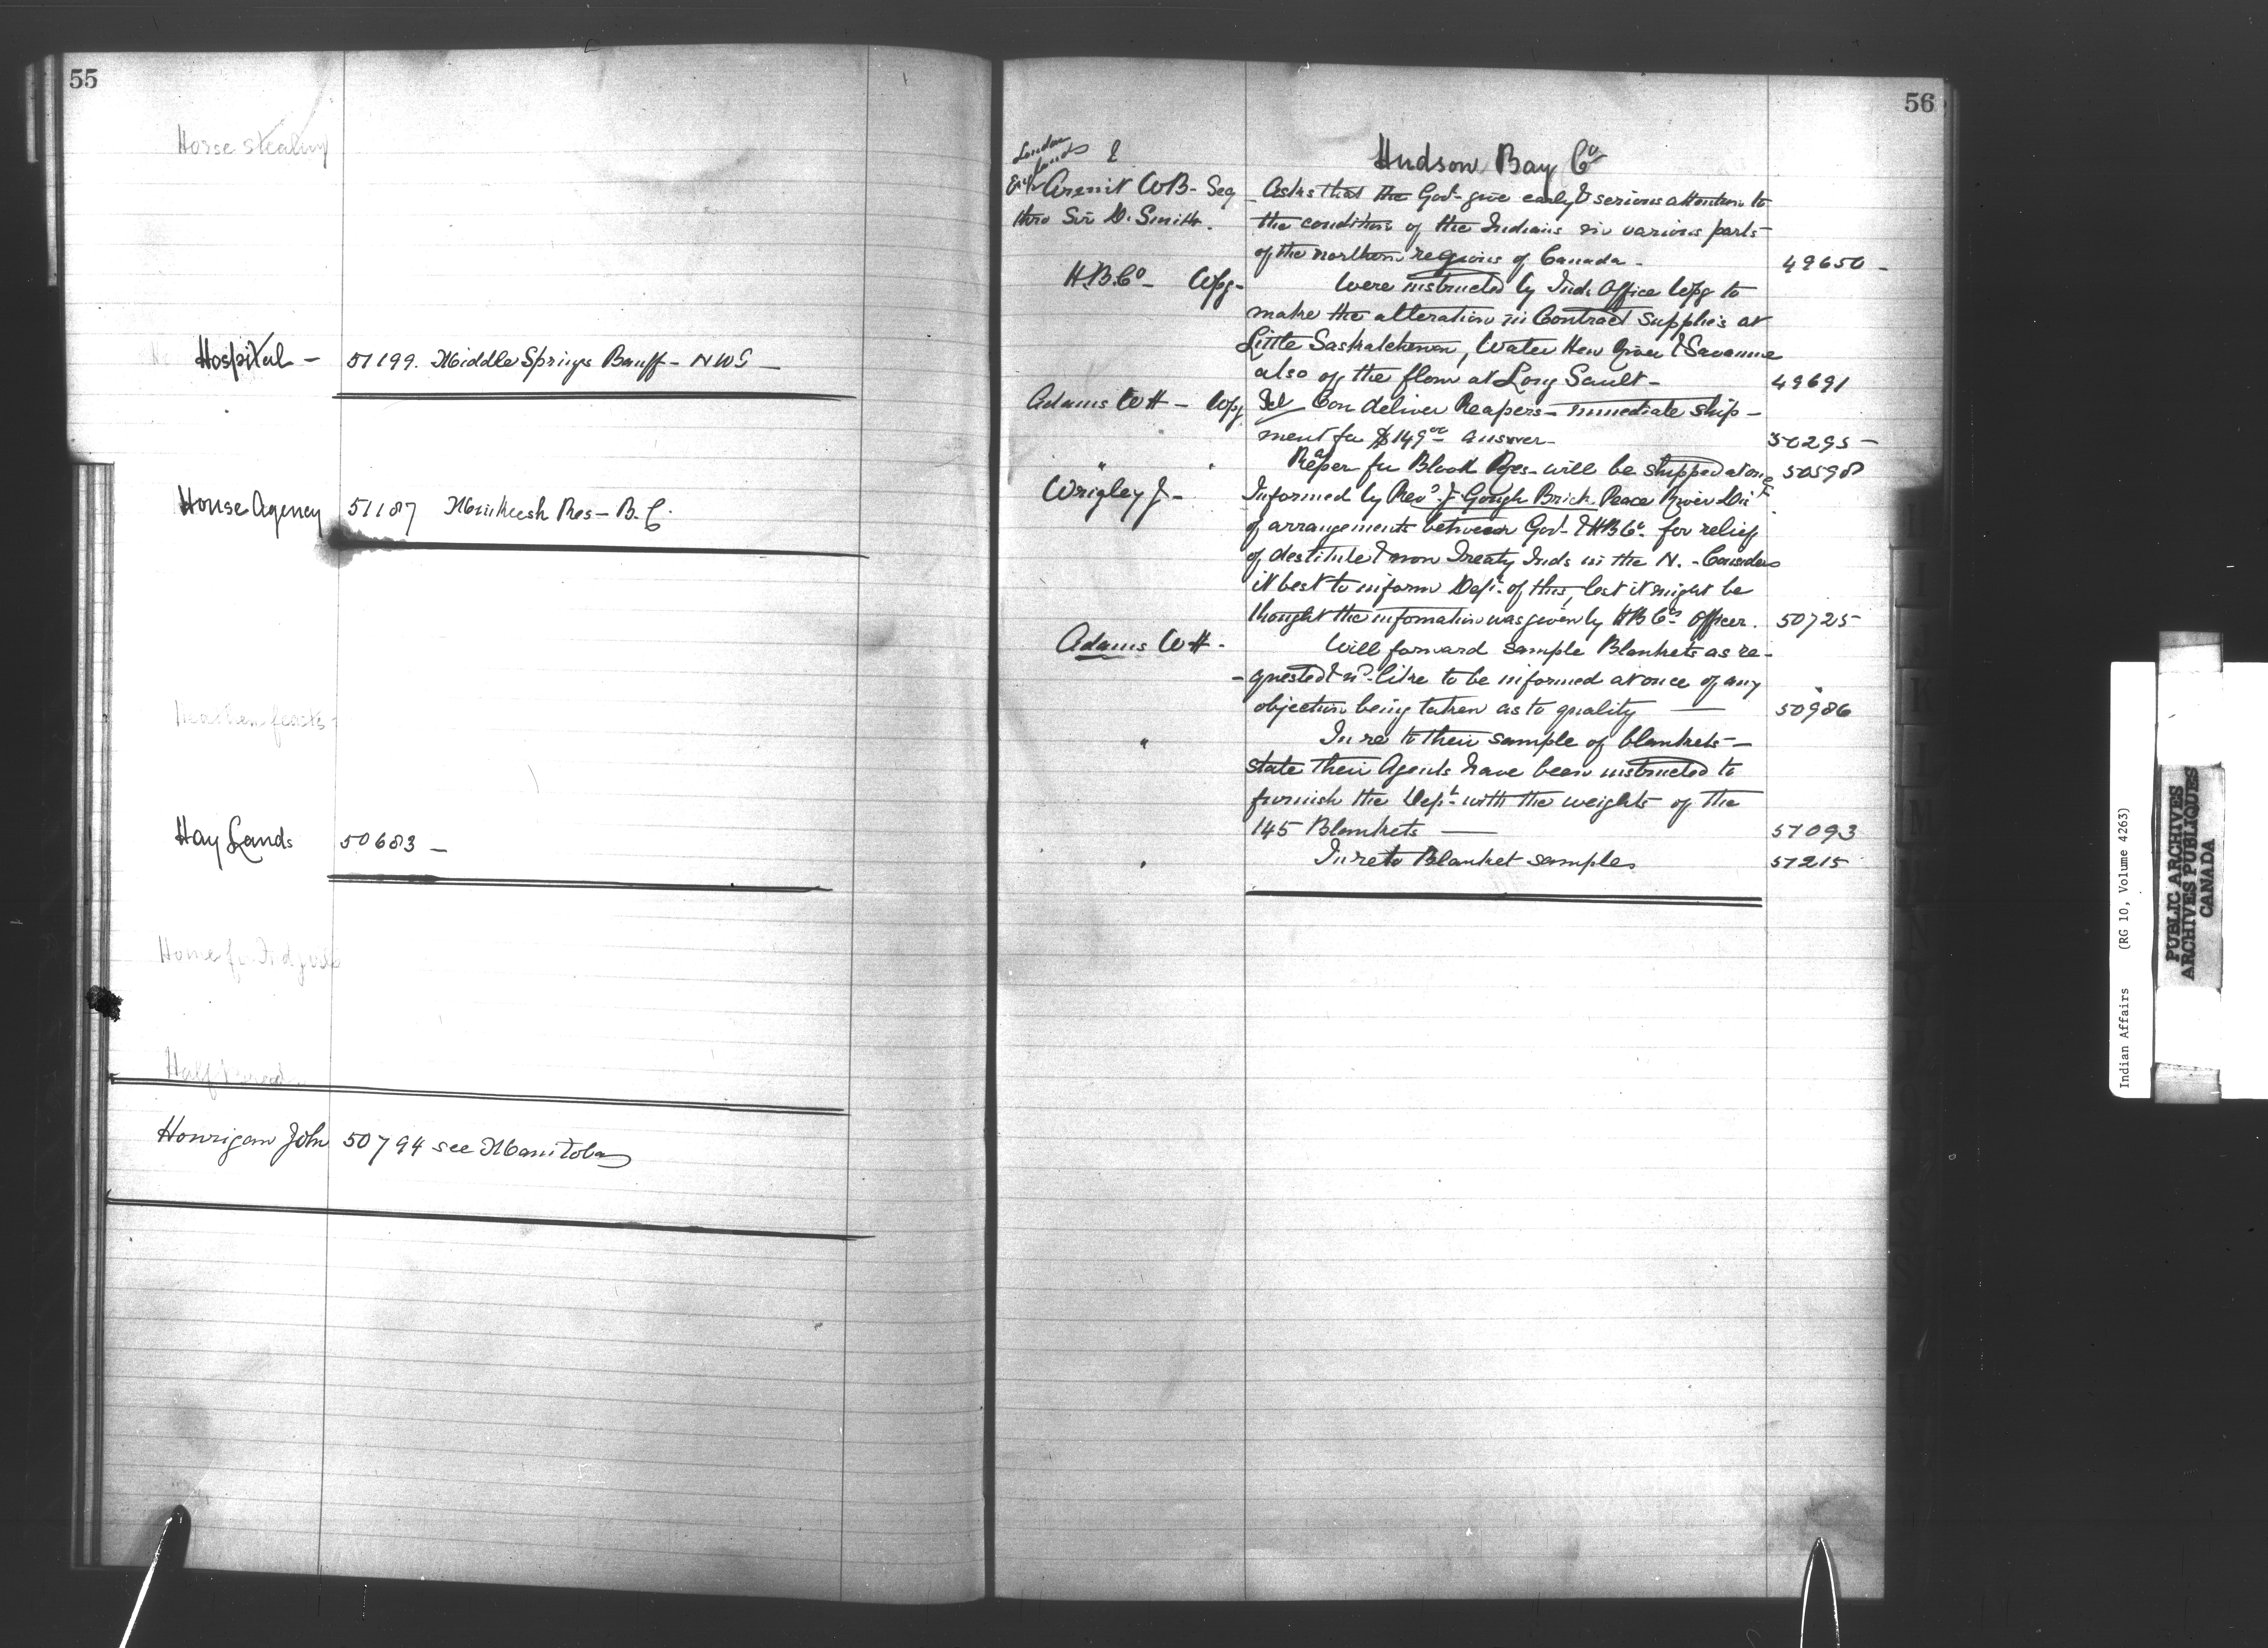 55
Horse stealing
Hospital - 51199. Middle Springs Banff - NWT -
House Agency 51187 Nimkeesh Res - B.C.
Heathen feasts -
Hay Lands 50683 -
Home for
Half breeds
Honrigan John 50794 see Manitoba
56
Hudson Bay Co
London
Armit WB - Secy
thro Sir D. Smith.
Asks that the Govt. give early & serious attention to
the condition of the Indians in various parts
of the northern regions of Canada - 49650 -
H.B.Co - Wpg - Were instructed by Ind. Office Wpg to
make the alteration in Contract supplies at
Little Saskatchewan, Water Hen River & Savanne
also of the flour at Long Sault - 49691
Adams WH - Wpg Tel Can deliver Reapers - immediate ship -
ment for $149 00 answer - 50295 -
" " Reaper for Blood Res - will be shipped at once 50598
Wrigley J - Informed by Revd. J. Gough Brick Peace River Dist
of arrangements between Govt. & HBCo. for relief
of destitute & non Treaty Inds in the N. - Considers
it best to inform Dept. of this, lest it might be
thought the information was given by HBCos Officer. 50725
Adams WH - Will forward sample Blankets as re -
- quested & wd. like to be informed at once of any
objection being taken as to quality — 50986
" In re to their sample of blankets -
state their Agents have been instructed to
furnish the Dept. with the weights of the
145 Blankets — 51093
" In re to Blanket samples 51215
Indian Affairs (RG 10, Volume 4263)
PUBLIC ARCHIVES
ARCHIVES PUBLIQUES
CANADA